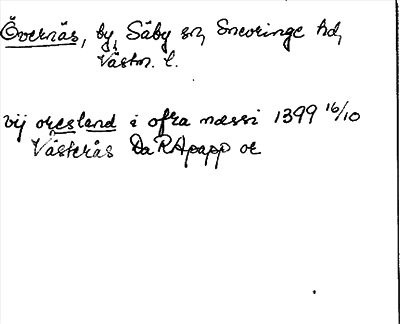 Övernäs, by, Säby sn, Snevringe hd,
Västm. l.
vij øresland i ofra næssi 1399 16/10
Västerås Da RApapp or